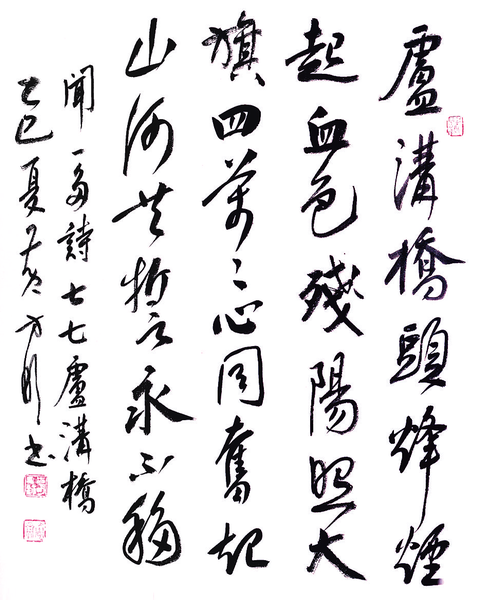 盧溝橋頭烽煙
起血色殘陽照大
旗四萬〻心同奮起
山河共誓永不移
聞一多詩七七盧溝橋
乙巳夏